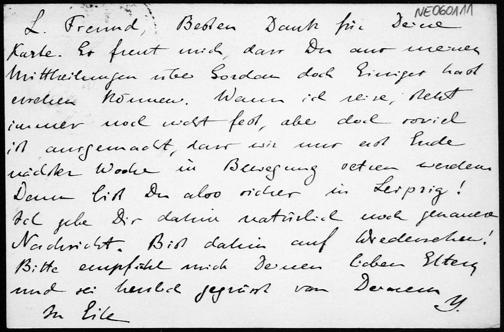 NE060111
L. Freund, Besten Dank für Deine
Karte. Es freut mich, dass Du aus meinen
Mittheilungen über Gordan doch Einiges hast
ersehen können. Wann ich reise, steht
immer noch nicht fest, aber doch soviel
ist ausgemacht, dass wir uns erst Ende
nächster Woche in Bewegung setzen werden.
Dann bist Du also sicher in Leipzig!
Ich gebe Dir dahin natürlich noch genauere
Nachricht. Bis dahin auf Wiedersehen!
Bitte empfiehl mich Deinen lieben Eltern
und sei herzlich gegrüsst von Deinem
In Eile